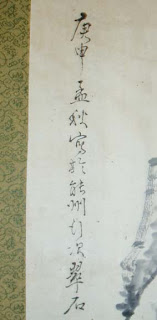 庚申孟秋寫於能州行次翠石